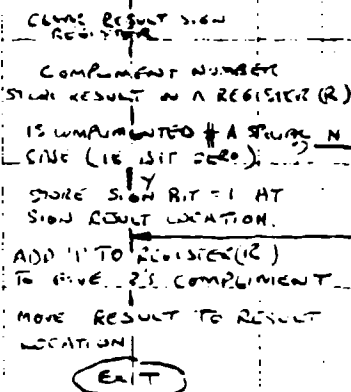 CLEAR RESULT SIGN
REGISTER
COMPLIMENT NUMBER
STORE RESULT IN A REGISTER (R)
IS COMPLIMENTED # A SPECIAL N
CASE (IE BIT ZERO)?
Y
STORE SIGN BIT = 1 AT
SIGN RESULT LOCATION.
ADD '1' TO REGISTER (R)
TO GIVE 2'S COMPLIMENT
MOVE RESULT TO RESULT
LOCATION
EXIT